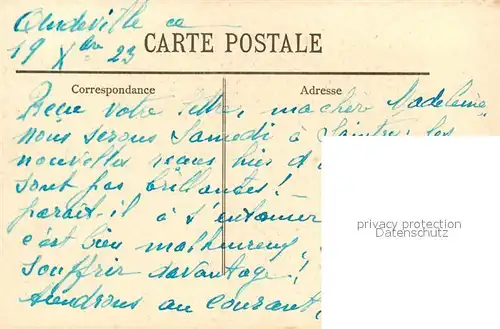 Andeville ce
19 Xbre 23
CARTE POSTALE
Correspondance
Adresse
Reçu votre lettre, ma chère Madeleine,
nous serons Samedi à les
nouvelles reçues hier d
sont pas brillantes !
paraît-il à s'entamer
c'est bien malheureux
souffrir davantage !
tiendrons au courant,
privacy protection
Datenschutz